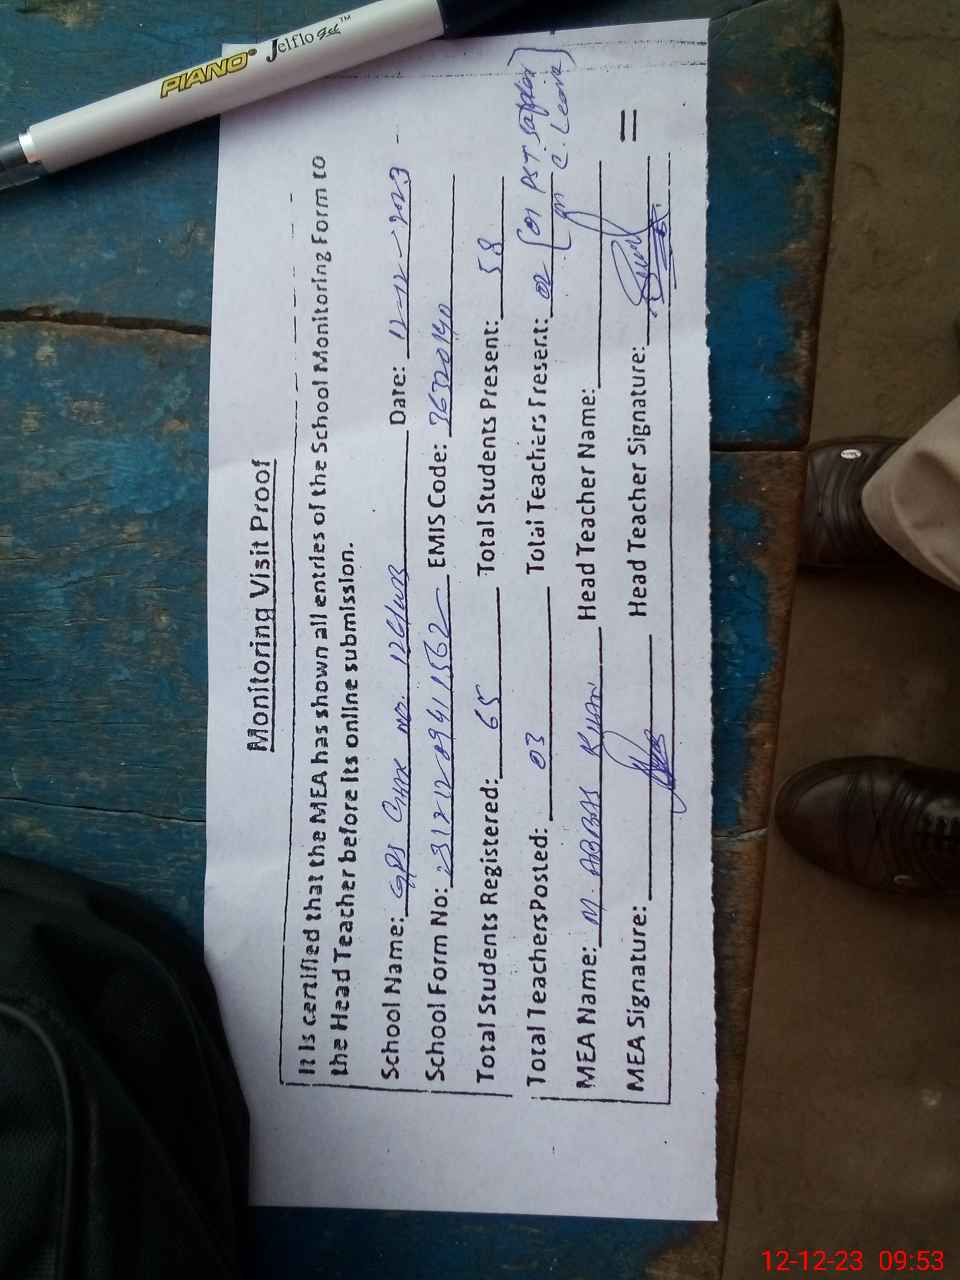 PIANO® Jelflo gel™
Monitoring Visit Proof
It is certified that the MEA has shown all entries of the School Monitoring Form to
the Head Teacher before its online submission.
School Name: GPS Chak No. 126/WB Date: 12-12-2023
School Form No: EMIS Code: 36320140
Total Students Registered: 65 Total Students Present: 58
Total Teachers Posted: 03 Total Teachers Present: 02 (01 PST Safdar
on C. Leave)
MEA Name: M. ABBAS KHAN Head Teacher Name:
MEA Signature: Head Teacher Signature:
12-12-23 09:53